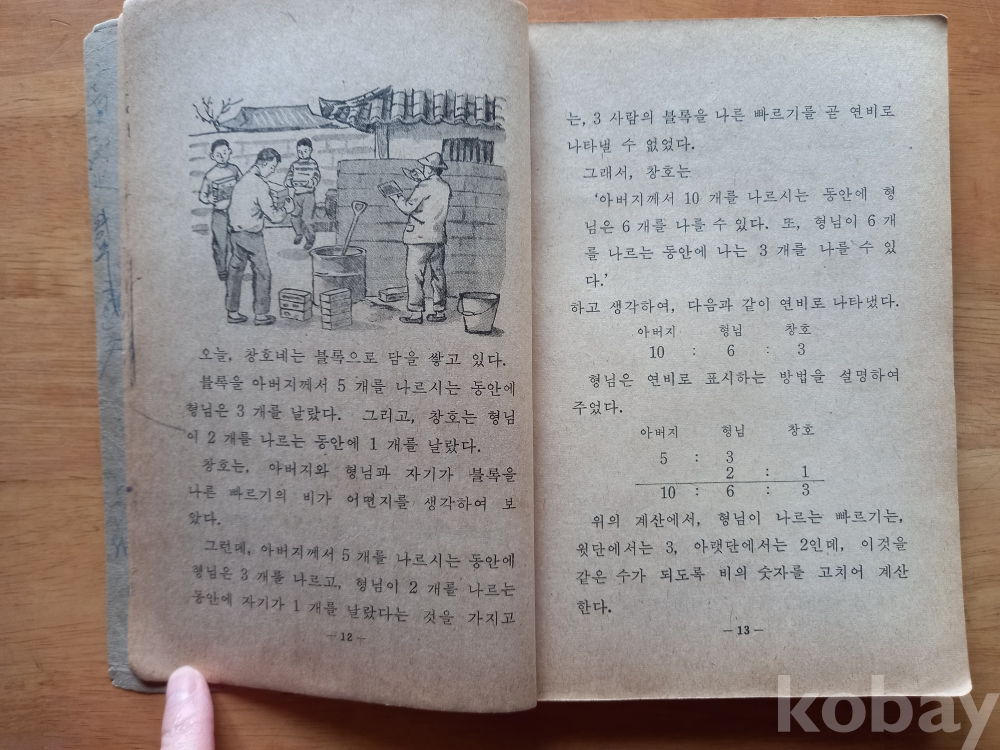 오늘, 창호네는 블록으로 담을 쌓고 있다.
블록을 아버지께서 5 개를 나르시는 동안에
형님은 3 개를 날랐다. 그리고, 창호는 형님
이 2 개를 나르는 동안에 1 개를 날랐다.
창호는, 아버지와 형님과 자기가 블록을
나른 빠르기의 비가 어떤지를 생각하여 보
았다.
그런데, 아버지께서 5 개를 나르시는 동안에
형님은 3 개를 나르고, 형님이 2 개를 나르는
동안에 자기가 1 개를 날랐다는 것을 가지고
— 12 —
는, 3 사람의 블록을 나른 빠르기를 곧 연비로
나타낼 수 없었다.
그래서, 창호는
‘아버지께서 10 개를 나르시는 동안에 형
님은 6 개를 나를 수 있다. 또, 형님이 6 개
를 나르는 동안에 나는 3 개를 나를 수 있
다.’
하고 생각하여, 다음과 같이 연비로 나타냈다.
아버지 형님 창호
10 : 6 : 3
형님은 연비로 표시하는 방법을 설명하여
주었다.
아버지 형님 창호
5 : 3
2 : 1
10 : 6 : 3
위의 계산에서, 형님이 나르는 빠르기는,
윗단에서는 3, 아랫단에서는 2인데, 이것을
같은 수가 되도록 비의 숫자를 고치어 계산
한다.
— 13 —
kobay